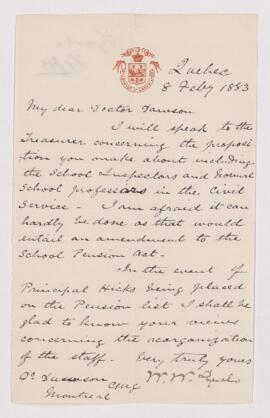 Quebec
8 Feby 1883
My dear Doctor Dawson
I will speak to the
Treasurer concerning the proposi
tion you make about including
the School Inspectors and Normal
School professors in the Civil
Service - I am afraid it can
hardly be done as that would
entail an amendment to the
School Pension Act -
In the event of
Principal Hicks being placed
on the Pension list I shall be
glad to know your views
concerning the reorganization
of the staff - Very truly yours
Dr Dawson CMG W. W.
Montreal